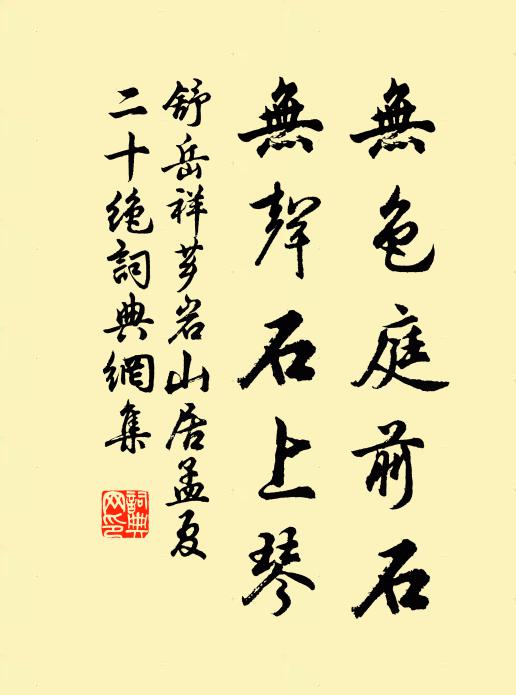 無色庭前石
無聲石上琴
舒岳祥芗岩山居孟夏
二十绝詞典網集
詞典网印